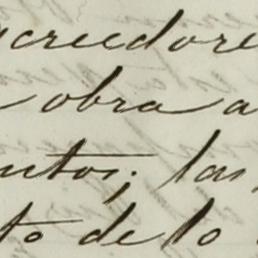 acreedore
obra a
ntos; las
to de lo